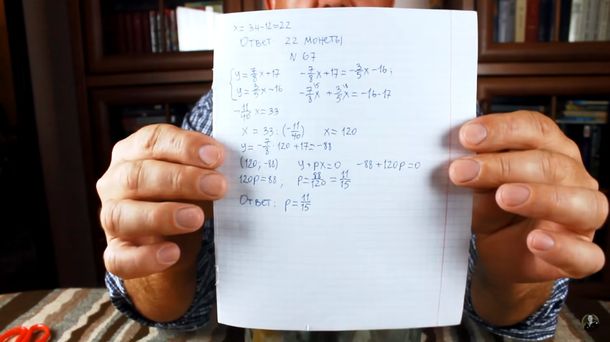 x = 34-12=22
Ответ 22 монеты
N 67
{ y=7/8x+17    -7/8x+17=-3/5x-16;
{ y=3/5x-16    -7/8x^5 +3/5x^8 = -16-17
-11/40x=33
x = 33:(-11/40)    x = 120
y=-7/8·120+17=-88
(120,-88)    y+px=0    -88+120p=0
120p=88;    p=88/120=11/15
Ответ: p=11/15